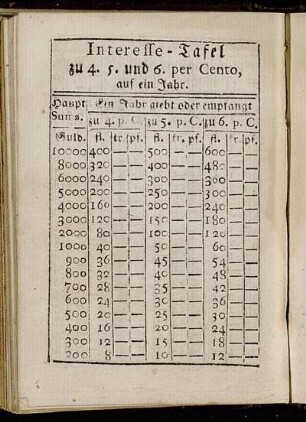 Interesse-Tafel
zu 4. 5. und 6. per Cento,
auf ein Jahr.
Haupt Ein Jahr giebt oder empfangt
Suma. zu 4. p. C. zu 5. p. C. zu 6. p. C.
Guld. fl. kr. pf. fl. kr. pf. fl. kr. pf.
10000 400 — — 500 — — 600 — —
8000 320 — — 400 — — 480 — —
6000 240 — — 300 — — 360 — —
5000 200 — — 250 — — 300 — —
4000 160 — — 200 — — 240 — —
3000 120 — — 150 — — 180 — —
2000 80 — — 100 — — 120 — —
1000 40 — — 50 — — 60 — —
900 36 — — 45 — — 54 — —
800 32 — — 40 — — 48 — —
700 28 — — 35 — — 42 — —
600 24 — — 30 — — 36 — —
500 20 — — 25 — — 30 — —
400 16 — — 20 — — 24 — —
300 12 — — 15 — — 18 — —
200 8 — — 10 — — 12 — —